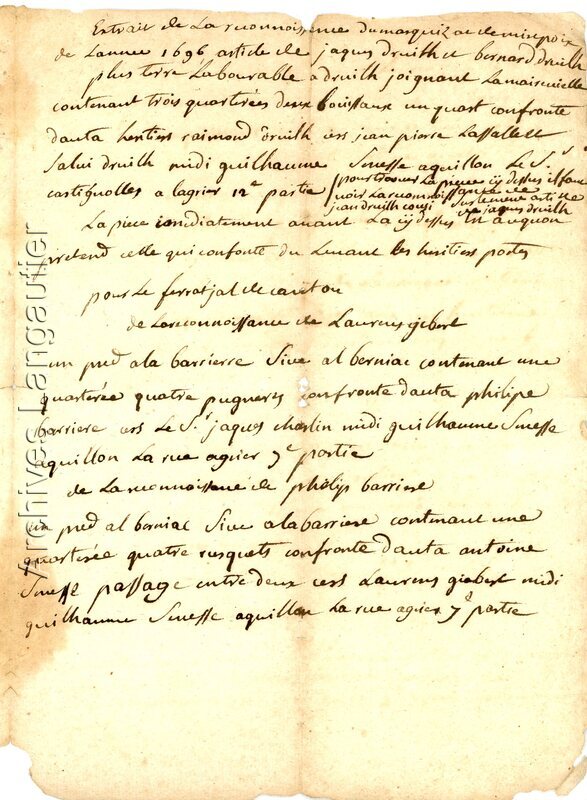 Extrait de La reconnoissence du marquizat de mirepoix
de Lannee 1696 article de jaques druilh et bernard druilh
plus terre Labourable a druilh joignant La maiterielle
contenant trois quarterées deux boissaux un quart confronte
dauta heritiers raimond druilh cers jean pierre Lassalle et
Salui druilh midi guilhaume Senesse aquillon Le S.r
castignolles a lagrier 12.e partie
pour trouver La piece cy dessus il faut
voir La reconnoissance de
jean druilh sur Le meme article
de jaques druilh
La piece imediatement avant La cy dessus
pretend celle qui confonte du Levant les heritiers
pour Le ferratjal de
de La reconnoissance de Laurens gibert
un pred a la barrierre Sive al berniac contenant une
quarterée quatre pugneres confronte dauta philipe
barriere cers Le S.r jaques charlin midi guilhaume Senesse
aquillon La rue agrier 9.e partie
de La reconnoissence de philip barriere
un pred al berniac Sive a la barriere contenant une
quarterée quatre rusquets confronte dauta antoine
Senesse passage entre deux cers Laurens giebert midi
guilhaume Senesse aquillon La rue agrier 9.e partie
Archives Langautier